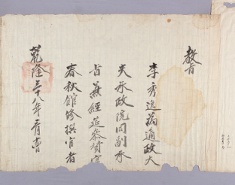 教旨
李秀逸爲通政大
夫承政院同副承
旨兼經筵參贊官
春秋館修撰官者
乾隆三十八年二月 日